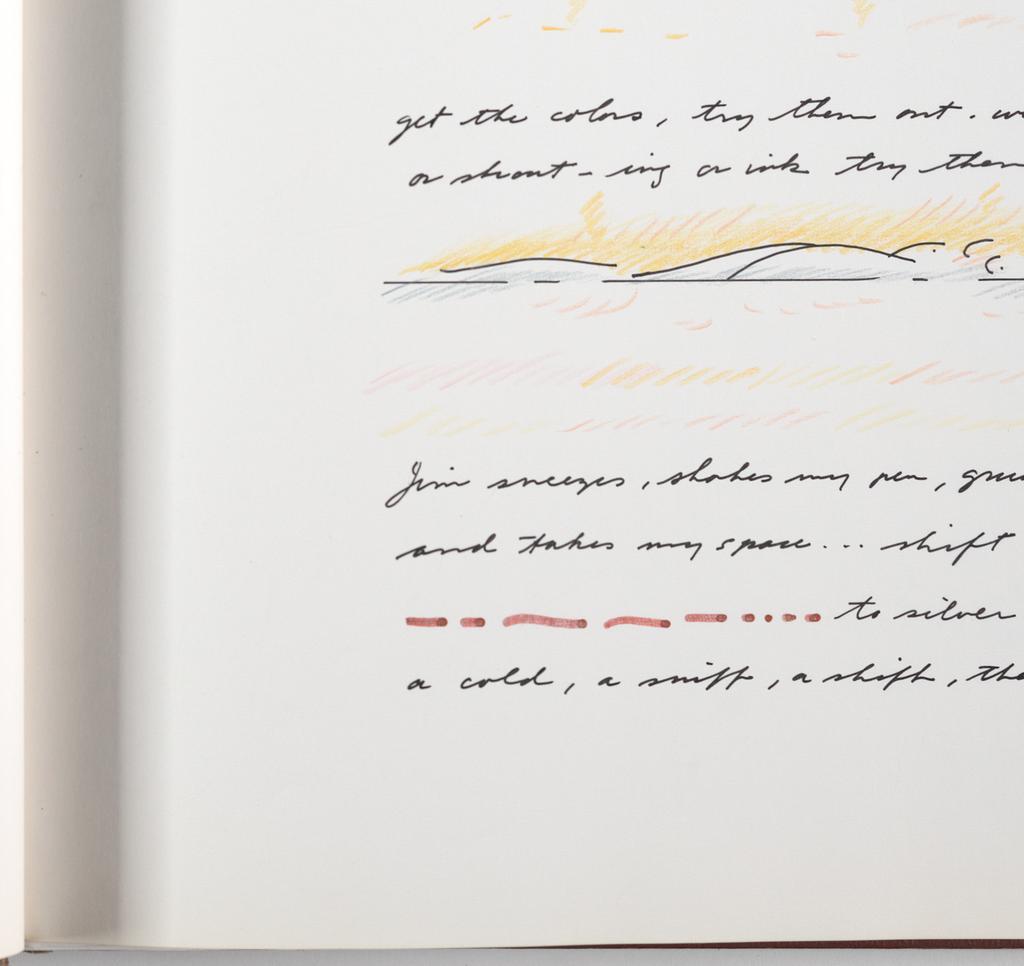 get the colors, try them out.
or shout-ing or ink try them
Jim sneezes, shakes my pen,
and takes my space... shift
to silver
a cold, a sniff, a shift,